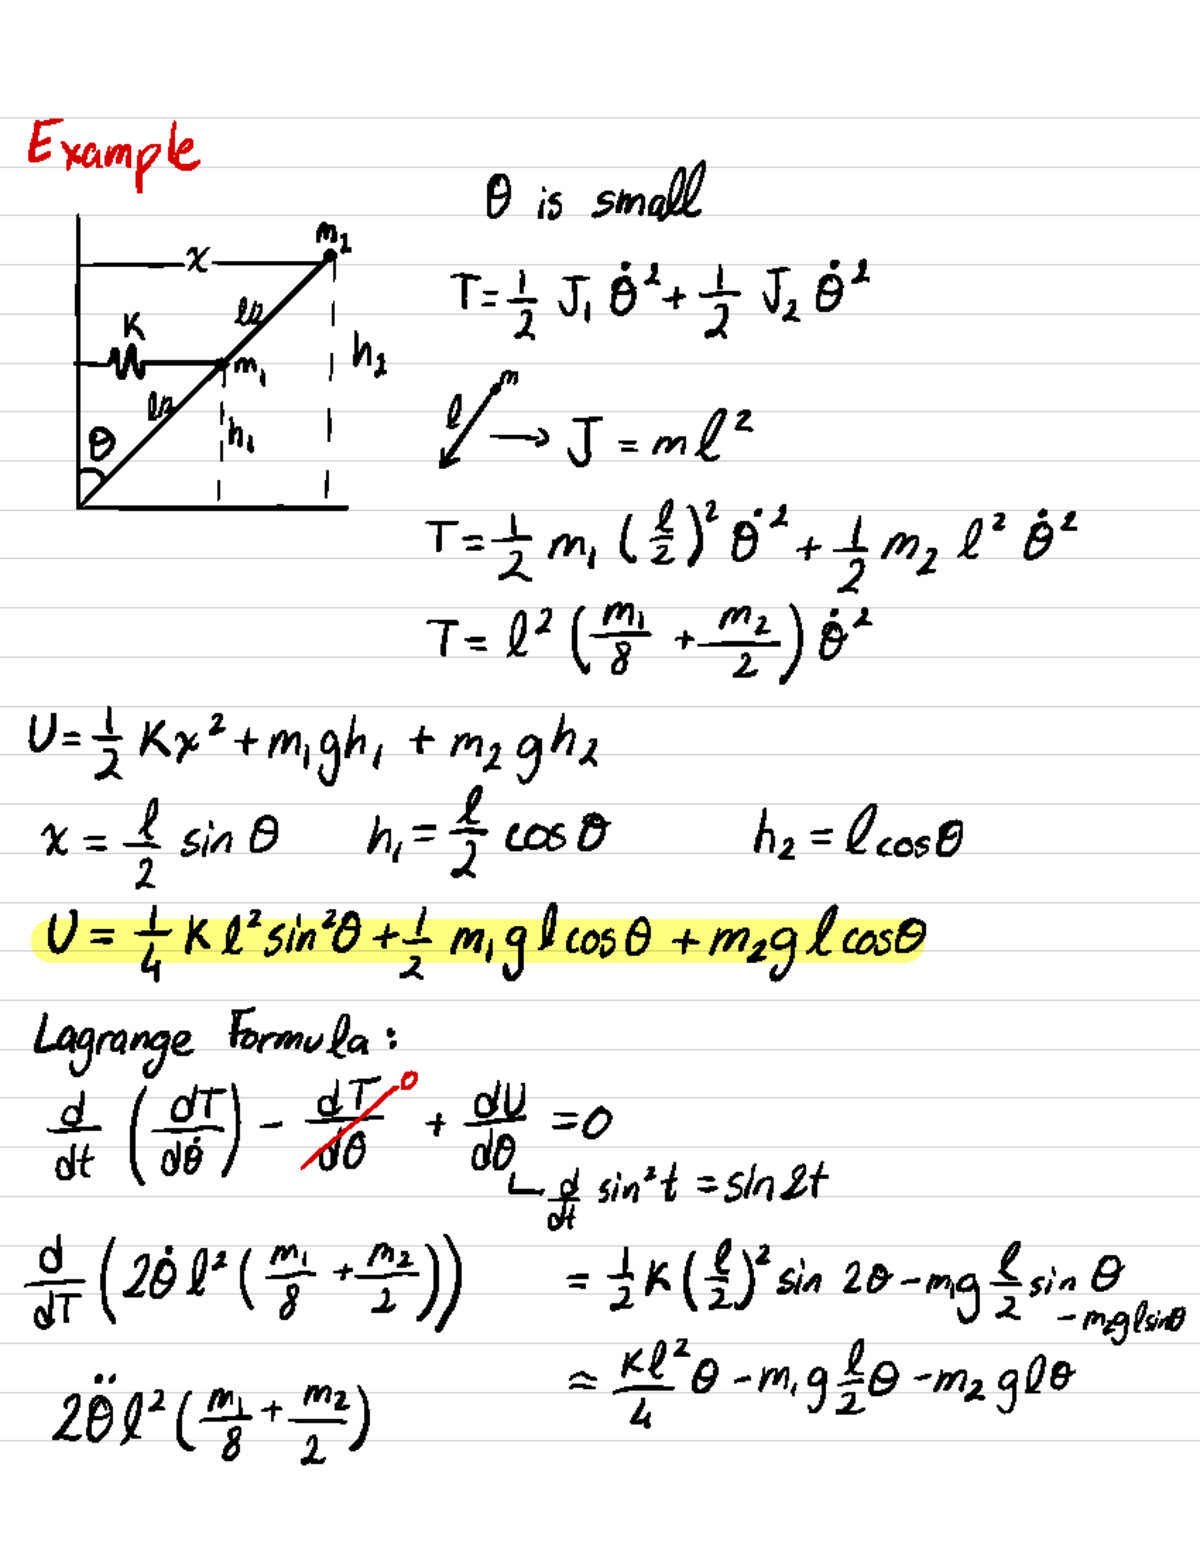 Example
θ is small
m₂
x
l/2
K
m₁
h₂
l/2
h₁
θ
T = 1/2 J₁ θ̇² + 1/2 J₂ θ̇²
l m → J = m l²
T = 1/2 m₁ (l/2)² θ̇² + 1/2 m₂ l² θ̇²
T = l² (m₁/8 + m₂/2) θ̇²
U = 1/2 K x² + m₁gh₁ + m₂gh₂
x = l/2 sin θ h₁ = l/2 cos θ h₂ = l cos θ
U = 1/4 K l² sin²θ + 1/2 m₁ g l cos θ + m₂ g l cosθ
Lagrange Formula:
d/dt (dT/dθ̇) - dT/dθ 0 + dU/dθ = 0
d/dt sin²t = sin2t
d/dT (2θ̇ l² (m₁/8 + m₂/2)) = 1/2 K (l/2)² sin 2θ - m₁g l/2 sin θ - m₂g l sinθ
2θ̈ l² (m₁/8 + m₂/2) ≈ Kl²/4 θ - m₁g l/2 θ - m₂ g l θ